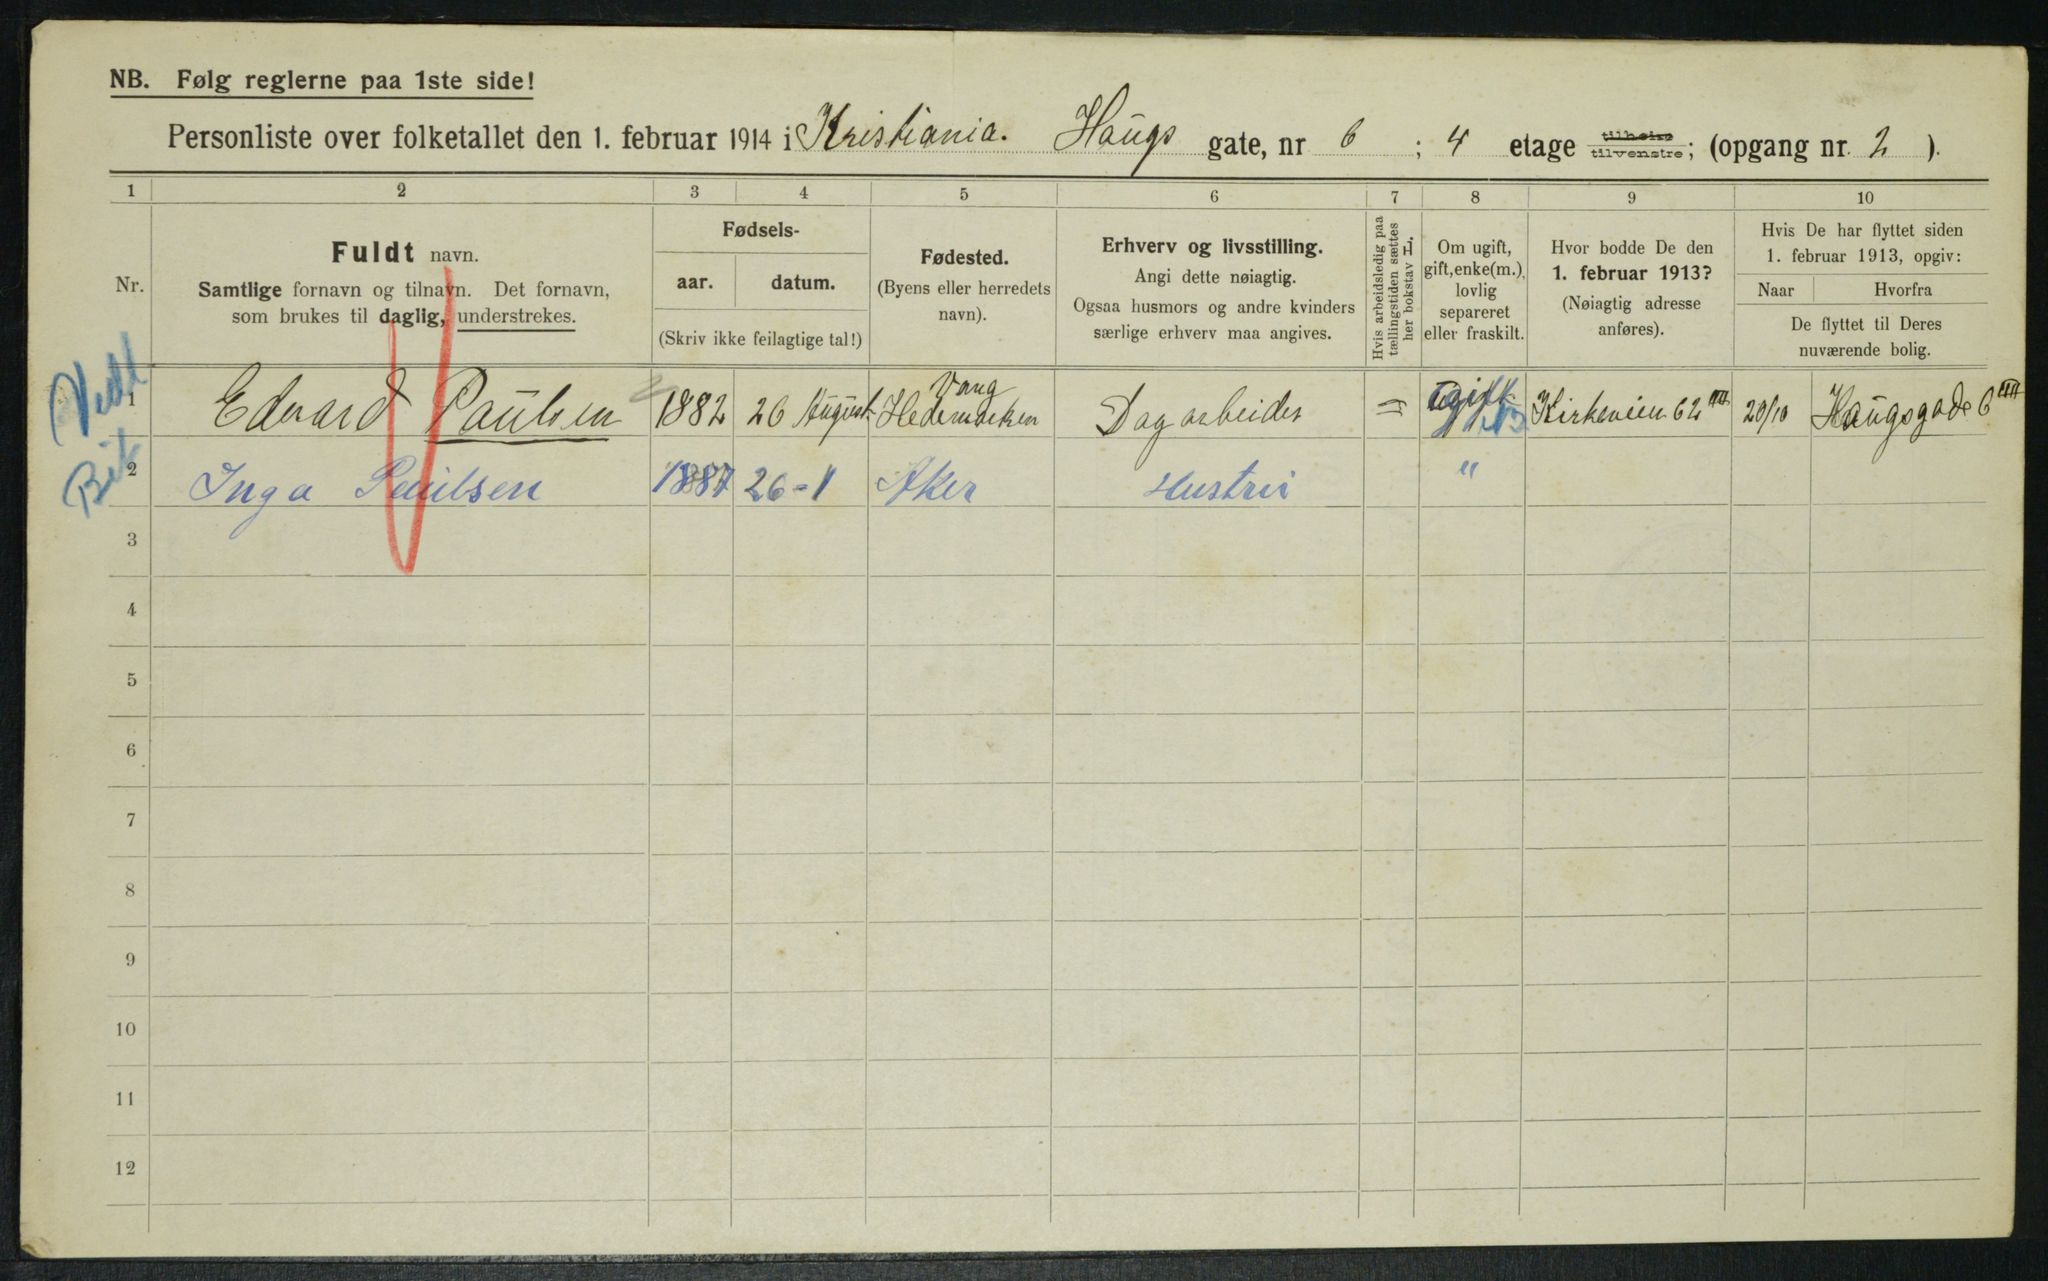 NB. Følg reglerne paa 1ste side!
Personliste over folketallet den 1. februar 1914 i Kristiania. Haugs gate, nr 6 ; 4 etage tilhøire tilvenstre; (opgang nr. 2 ).
1 2 3 4 5 6 7 8 9 10
Nr.
Fuldt navn.
Samtlige fornavn og tilnavn. Det fornavn,
som brukes til daglig, understrekes.
Fødsels-
aar. datum.
(Skriv ikke feilagtige tal!)
Fødested.
(Byens eller herredets
navn).
Erhverv og livsstilling.
Angi dette nøiagtig.
Ogsaa husmors og andre kvinders
særlige erhverv maa angives.
Hvis arbeidsledig paa
tællingstiden sættes
her bokstav L.
Om ugift,
gift, enke(m.),
lovlig
separeret
eller fraskilt.
Hvor bodde De den
1. februar 1913?
(Nøiagtig adresse
anføres).
Hvis De har flyttet siden
1. februar 1913, opgiv:
Naar Hvorfra
De flyttet til Deres
nuværende bolig.
1 Edvard Paulsen 1882 26 August Vang Hedemarken Dagarbeider = Kirkeveien 62 IIII 20/10 Haugsgade 6 IIII
2 Inga Paulsen 1887 26-1 Aker Hustru "
3
4
5
6
7
8
9
10
11
12